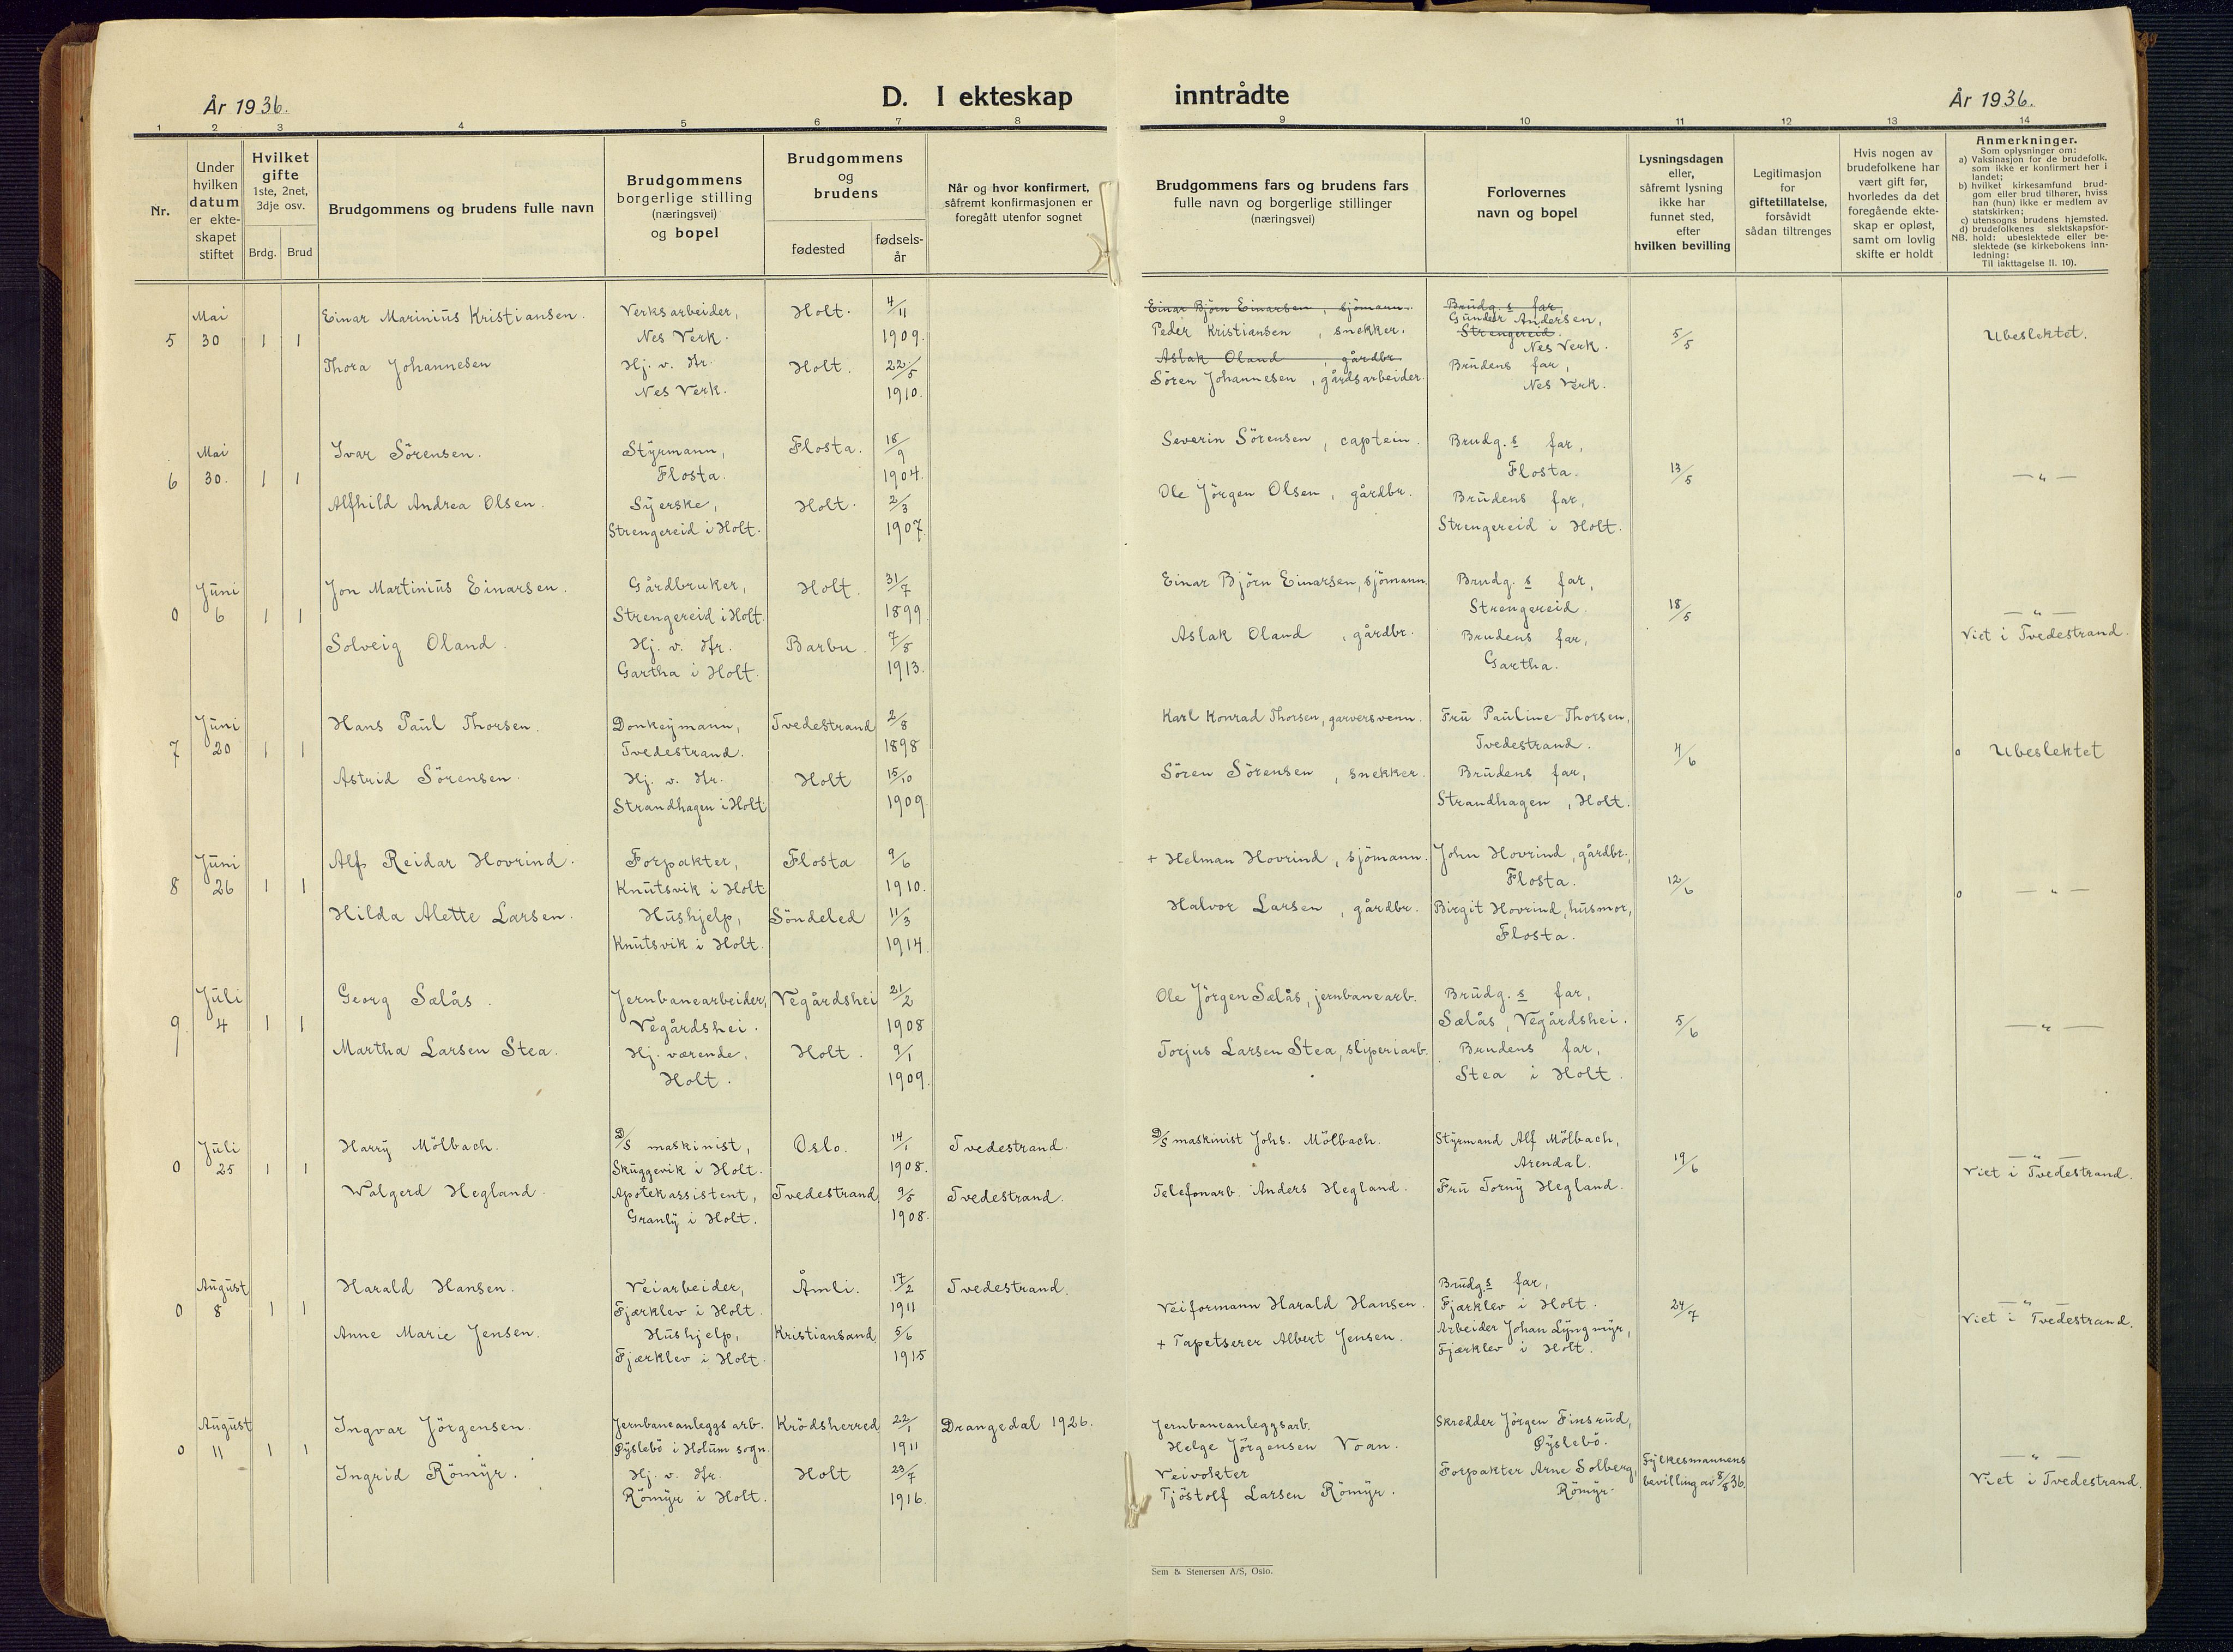 År 1936.
D. I ekteskap inntrådte
År 1936.
1 2 3 4 5 6 7 8 9 10 11 12 13 14
Nr.
Under
hvilken
datum
er ekte-
skapet
stiftet
Hvilket
gifte
1ste, 2net,
3dje osv.
Brdg. Brud
Brudgommens og brudens fulle navn
Brudgommens
borgerlige stilling
(næringsvei)
og bopel
Brudgommens
og
brudens
fødested
fødsels-
år
Når og hvor konfirmert,
såfremt konfirmasjonen er
foregått utenfor sognet
Brudgommens fars og brudens fars
fulle navn og borgerlige stillinger
(næringsvei)
Forlovernes
navn og bopel
Lysningsdagen
eller,
såfremt lysning
ikke har
funnet sted,
efter
hvilken bevilling
Legitimasjon
for
giftetillatelse,
forsåvidt
sådan tiltrenges
Hvis nogen av
brudefolkene har
vært gift før,
hvorledes da det
foregående ekte-
skap er opløst,
samt om lovlig
skifte er holdt
Anmerkninger.
Som oplysninger om:
a) Vaksinasjon for de brudefolk.
som ikke er konfirmert her i
landet;
b) hvilket kirkesamfund brud-
gom eller brud tilhører, hviss
han (hun) ikke er medlem av
statskirken;
c) utensogns brudens hjemsted.
d) brudefolkenes slektskapsfor-
NB. hold: ubeslektede eller be-
slektede (se kirkebokens inn-
ledning:
Til iakttagelse II. 10).
5
Mai
30
1 1
Einar Marinius Kristiansen.
Verksarbeider,
Nes Verk.
Holt.
4/11
1909.
Einar Björn Einarsen, sjömann.
Peder Kristiansen, snekker.
Brudg.s far,
Gunder Andersen,
Strengereid.
Nes Verk.
5/5
Ubeslektet.
Thora Johannesen
Hj. v. Fr.
Nes Verk.
Holt.
22/5
1910.
Aslak Oland, gårdbr.
Sören Johannesen, gårdsarbeider.
Brudens far,
Nes Verk.
6
Mai
30.
1 1
Ivar Sörensen.
Styrmann,
Flosta.
Flosta.
18/9
1904.
Severin Sörensen, captein.
Brudg.s far,
Flosta.
13/5
—"—
Alfhild Andrea Olsen.
Syerske,
Strengereid i Holt.
Holt.
2/3
1907.
Ole Jörgen Olsen, gårdbr.
Brudens far,
Strengereid i Holt.
0
Juni
6
1 1
Jon Martinius Einarsen.
Gårdbruker,
Strengereid i Holt.
Holt.
31/7
1899.
Einar Björn Einarsen, sjömann.
Brudg.s far,
Strengereid.
18/5
—"—
Viet i Tvedestrand.
Solveig Oland.
Hj. v. Fr.
Gartha i Holt.
Barbu.
7/8
1913.
Aslak Oland, gårdbr.
Brudens far,
Gartha.
7
Juni
20
1 1
Hans Paul Thorsen.
Donkeymann,
Tvedestrand.
Tvedestrand
2/8
1898
Karl Konrad Thorsen, garversvenn.
Fru Pauline Thorsen,
Tvedestrand.
4/6
o Ubeslektet
Astrid Sörensen.
Hj. v. Fr.
Strandhagen i Holt
Holt
15/10
1909.
Sören Sörensen, snekker.
Brudens far,
Strandhagen, Holt.
8
Juni
26
1 1
Alf Reidar Hovrind.
Forpakter,
Knutsvik i Holt
Flosta
9/6
1910.
+ Helman Hovrind, sjömann.
John Hovrind, gårdbr.,
Flosta.
12/6
o —"—
Hilda Alette Larsen.
Hushjelp,
Knutsvik i Holt.
Söndeled
11/3
1914.
Halvor Larsen, gårdbr.
Birgit Hovrind, husmor,
Flosta.
9
Juli
4
1 1
Georg Sælås.
Jernbanearbeider,
Vegårdshei.
Vegårdshei
21/2
1908
Ole Jörgen Sælås, jernbanearb.
Brudg.s far,
Sælås, Vegårdshei.
5/6
—"—
Martha Larsen Stea.
Hj. værende,
Holt.
Holt.
9/1
1909.
Torjus Larsen Stea, sliperiarb.
Brudens far,
Stea i Holt.
0
Juli
25
1 1
Harry Mölbach.
D/S maskinist,
Skuggevik i Holt.
Oslo.
14/1
1908.
Tvedestrand.
D/S maskinist Johs. Mölbach.
Styrmand Alf Mölbach,
Arendal.
19/6
—"—
Viet i Tvedestrand.
Walgerd Hegland.
Apotekassistent,
Granly i Holt.
Tvedestrand
9/5
1908.
Tvedestrand.
Telefonarb. Anders Hegland.
Fru Torny Hegland.
0
August
8
1 1
Harald Hansen.
Veiarbeider,
Fjærklev i Holt.
Åmli.
17/2
1911
Tvedestrand.
Veiformann Harald Hansen.
Brudg.s far,
Fjærklev i Holt.
24/7
—"—
Viet i Tvedestrand.
Anne Marie Jensen.
Hushjelp,
Fjærklev i Holt.
Kristiansand
5/6
1915
+ Tapetserer Albert Jensen.
Arbeider Johan Lyngmyr,
Fjærklev i Holt.
0
August
11
1 1
Ingvar Jörgensen.
Jernbaneanleggsarb.
Øyslebö i Holum sogn.
Krödsherred
22/1
1911
Drangedal 1926.
Jernbaneanleggsarb.
Helge Jörgensen Voan.
Skredder Jörgen Finsrud,
Øyslebö.
Fylkesmannens
bevilling av 5/8 36.
—"—
Viet i Tvedestrand.
Ingrid Römyr.
Hj. v. Fr.
Römyr i Holt.
Holt
23/7
1916.
Veivokter
Tjöstolf Larsen Römyr.
Forpakter Arne Solberg,
Römyr.
Sem & Stenersen A/S, Oslo.